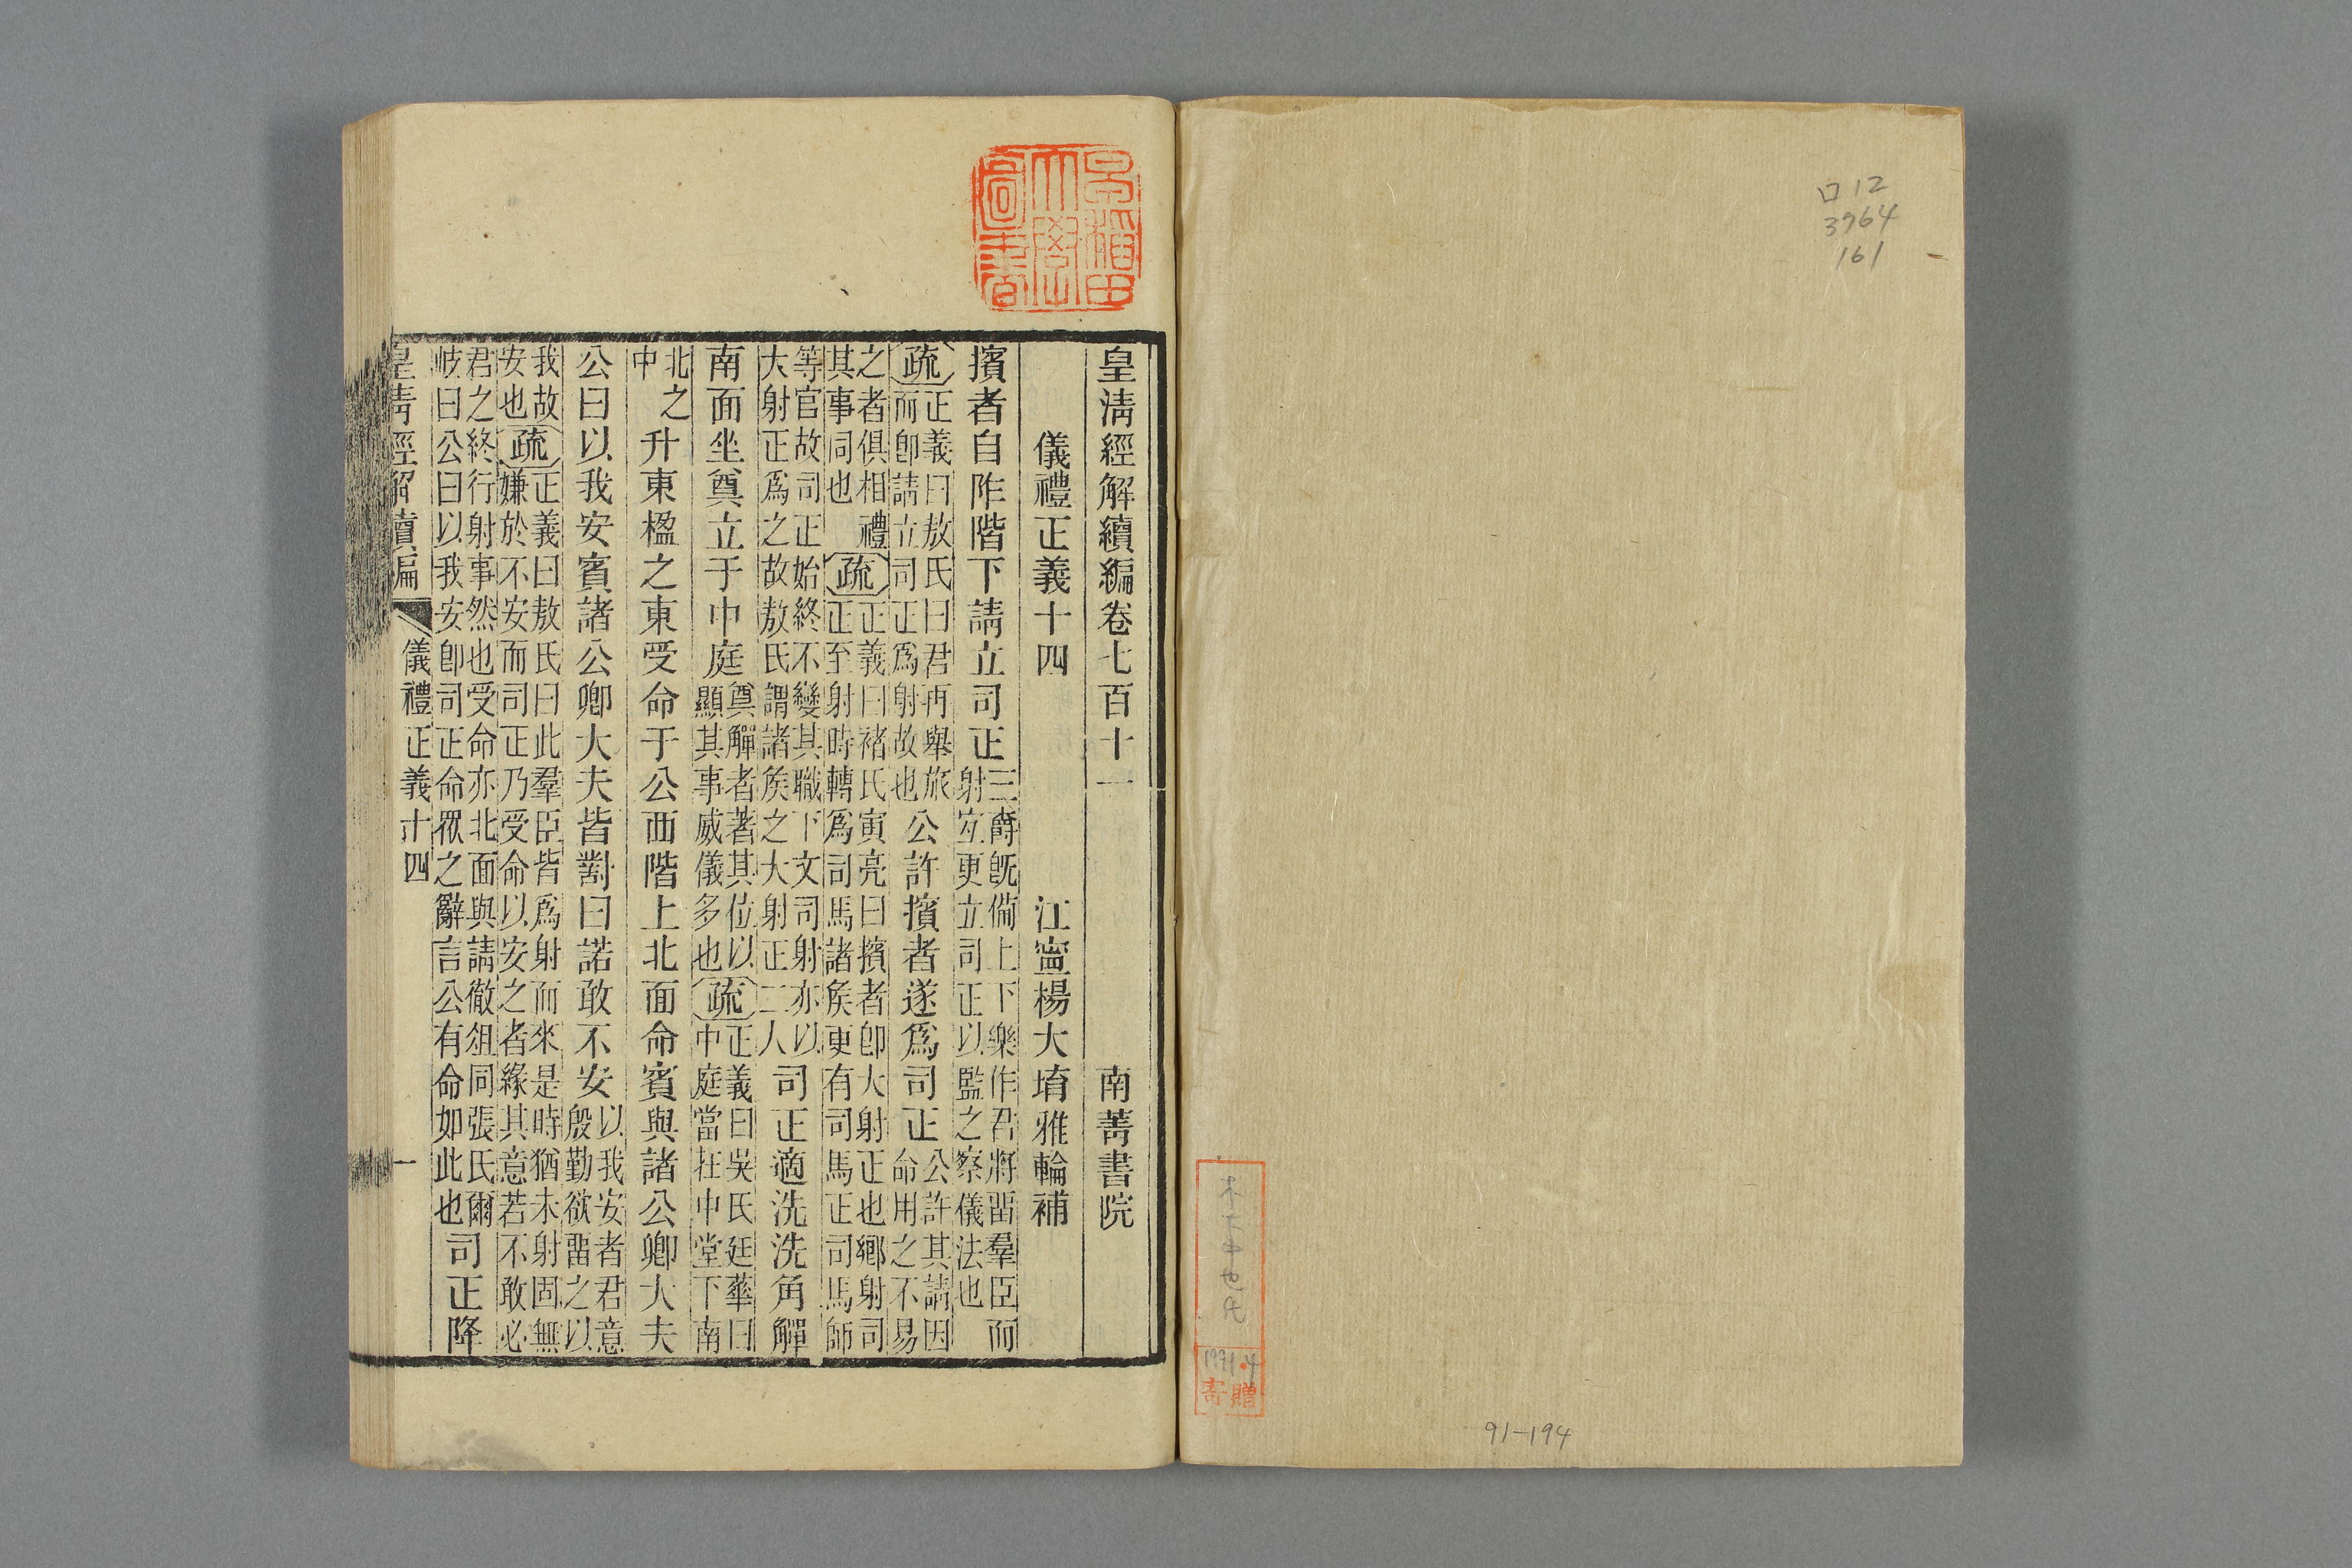 口12
3964
161
早稻田大學圖書
皇淸經解續編卷七百十一　南菁書院
儀禮正義十四　江寧楊大堉雅輪補
擯者自阼階下請立司正
三爵旣備上下樂作君將畱羣臣而
射宐更立司正以監之察儀法也
疏
正義曰敖氏曰君再舉旅
而卽請立司正爲射故也
公許擯者遂爲司正
公許其請因
命用之不易
之者俱相禮
其事同也
疏
正義曰褚氏寅亮曰擯者卽大射正也鄉射司
正至射時轉爲司馬諸矦更有司馬正司馬師
等官故司正始終不變其職下文司射亦以
大射正爲之故敖氏謂諸矦之大射正二人
司正適洗洗角觶
南面坐奠立于中庭
奠觶者著其位以
顯其事威儀多也
疏
正義曰吳氏廷華曰
中庭當在中堂下南
北之
中
升東楹之東受命于公西階上北面命賓與諸公卿大夫
公曰以我安賓諸公卿大夫皆對曰諾敢不安
以我安者君意
殷勤欲畱之以
我故
安也
疏
正義曰敖氏曰此羣臣皆爲射而來是時猶未射固無
嫌於不安而司正乃受命以安之者緣其意若不敢必
君之終行射事然也受命亦北面與請徹俎同張氏爾
岐曰公曰以我安卽司正命衆之辭言公有命如此也
司正降
皇淸經解續編　儀禮正義十四　一
1991.4
寄贈
91-194